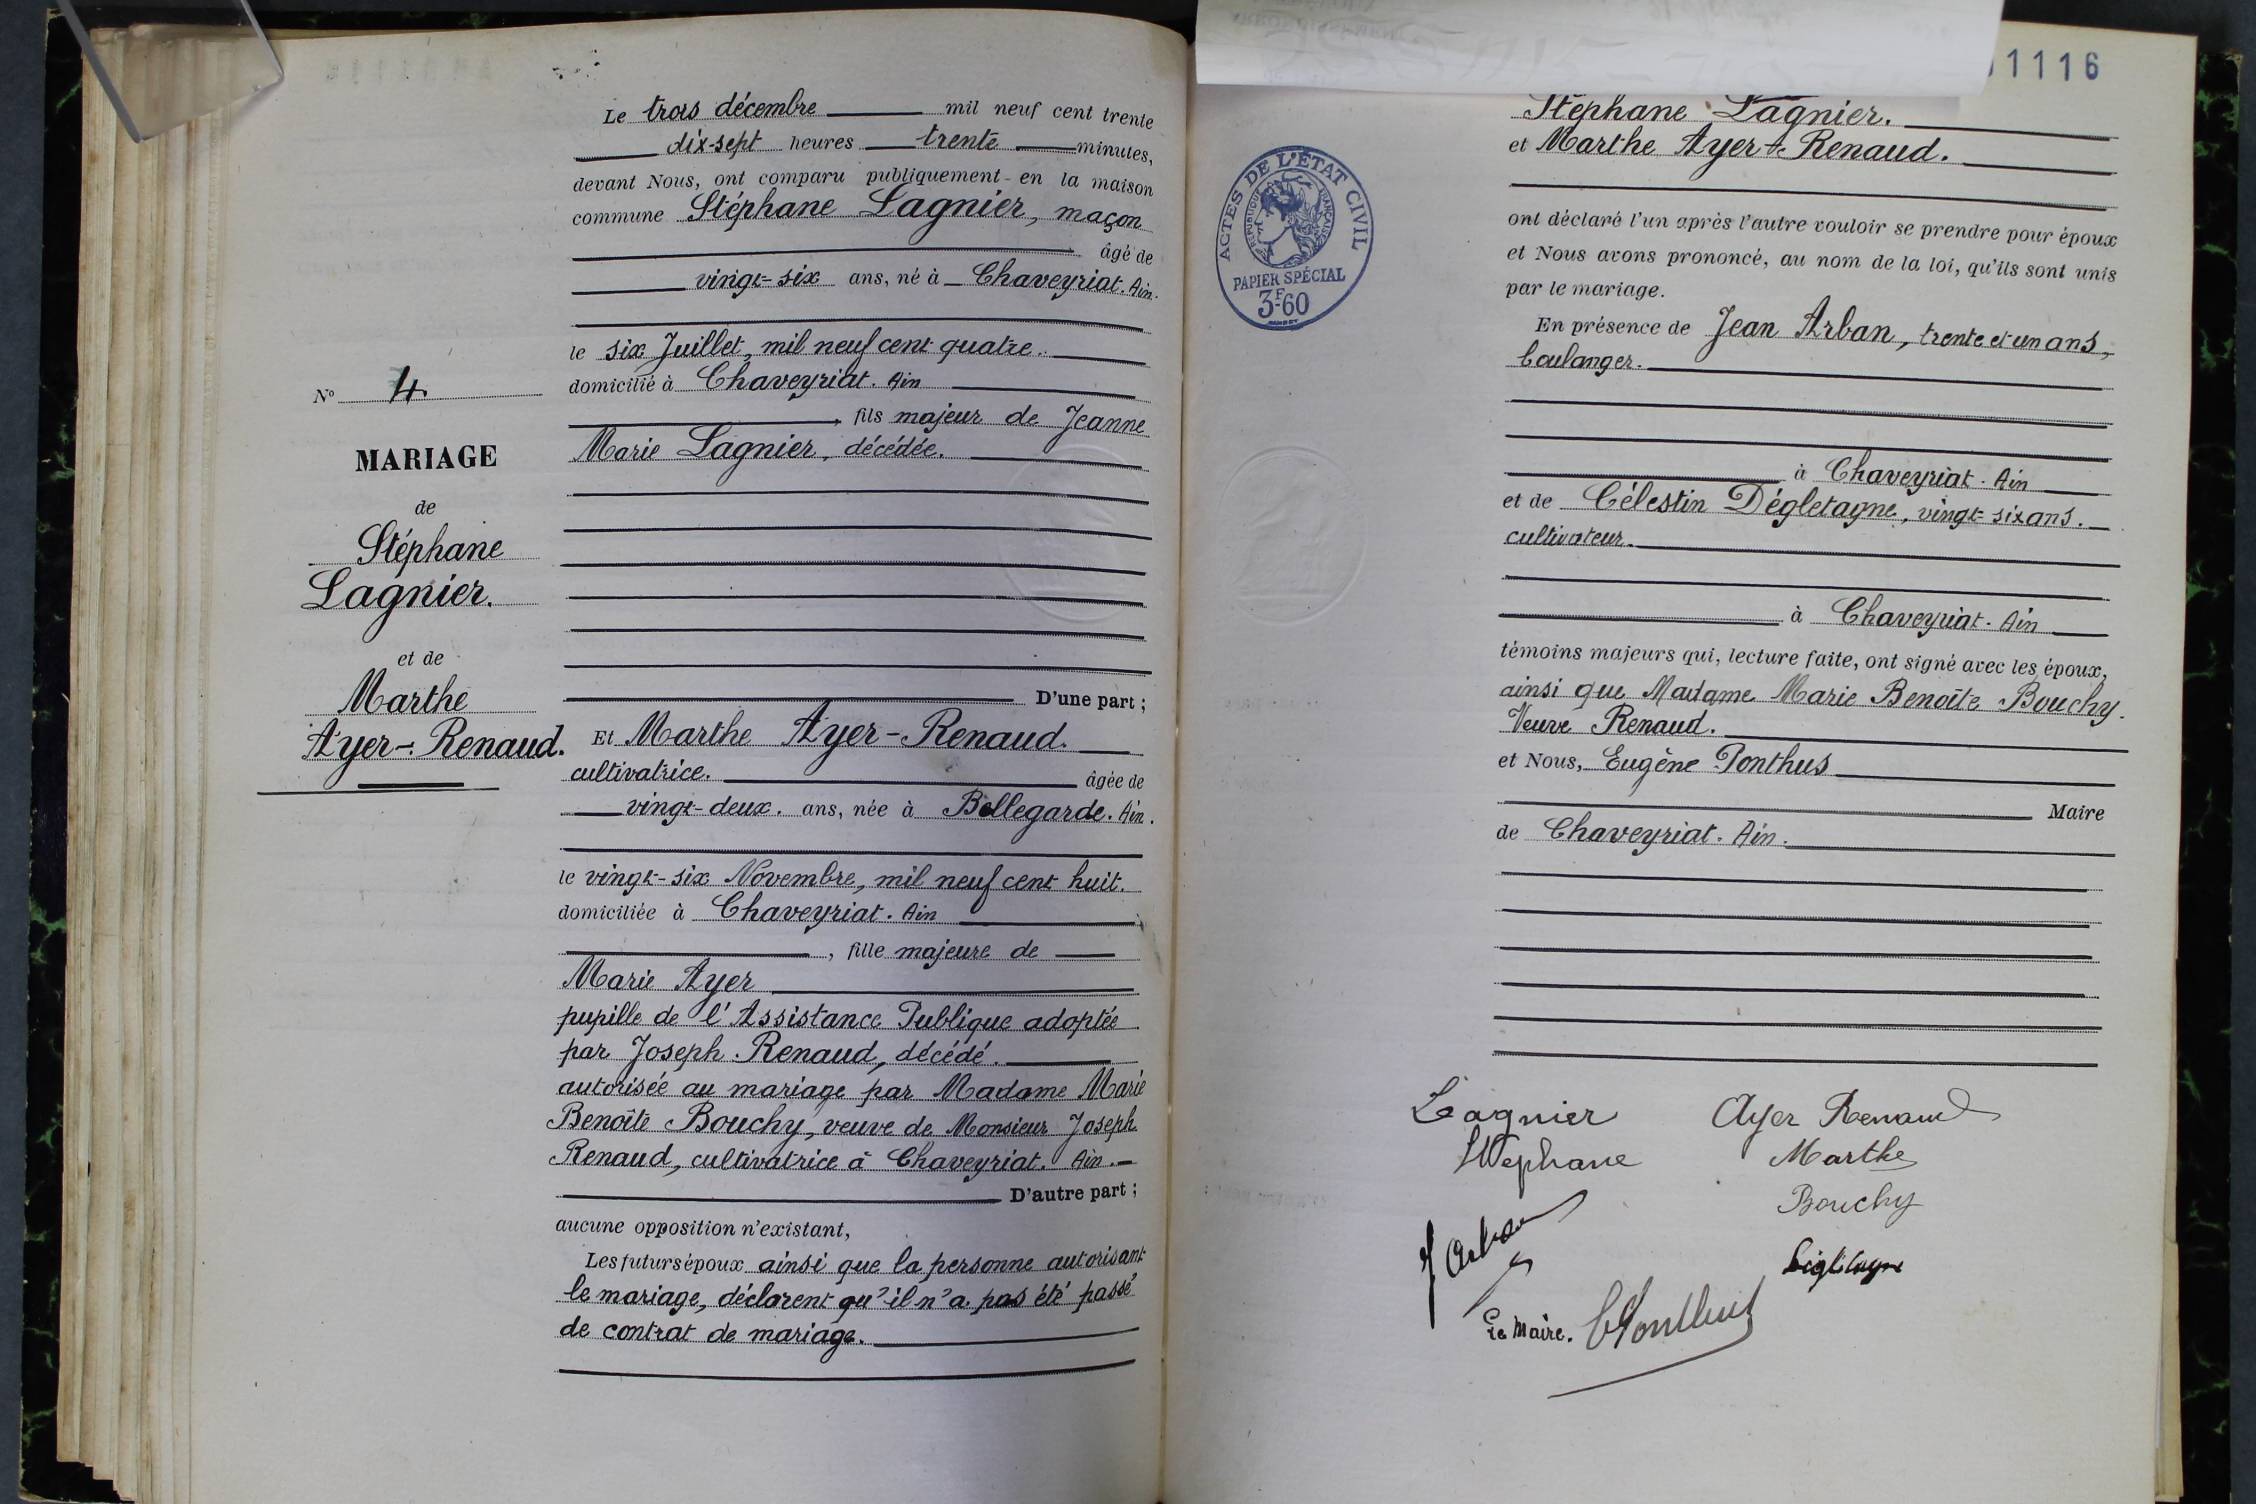 Le trois décembre mil neuf cent trente
dix-sept heures trente minutes,
devant Nous, ont comparu publiquement en la maison
commune Stéphane Lagnier, maçon
âgé de
vingt-six ans, né à Chaveyriat. Ain.
le six Juillet, mil neuf cent quatre.
domicilié à Chaveyriat. Ain
, fils majeur de Jeanne
Marie Lagnier, décédée.
D'une part ;
Nº 4
MARIAGE
de
Stéphane
Lagnier.
et de
Marthe
Ayer-Renaud.
Et Marthe Ayer-Renaud.
cultivatrice. âgée de
vingt-deux. ans, née à Bellegarde. Ain.
le vingt-six Novembre, mil neuf cent huit.
domiciliée à Chaveyriat. Ain
, fille majeure de
Marie Ayer
pupille de l'Assistance Publique adoptée
par Joseph Renaud, décédé.
autorisée au mariage par Madame Marie
Benoîte Bouchy, veuve de Monsieur Joseph
Renaud, cultivatrice à Chaveyriat. Ain.
D'autre part ;
aucune opposition n'existant,
Les futurs époux ainsi que la personne autorisant
le mariage, déclarent qu'il n'a pas été passé
de contrat de mariage.
1116
Stéphane Lagnier.
et Marthe Ayer-Renaud.
ACTES DE L'ÉTAT CIVIL
RÉPUBLIQUE FRANÇAISE
PAPIER SPÉCIAL
3F60
ont déclaré l'un après l'autre vouloir se prendre pour époux
et Nous avons prononcé, au nom de la loi, qu'ils sont unis
par le mariage.
En présence de Jean Arban, trente et un ans,
boulanger.
à Chaveyriat. Ain
et de Célestin Dégletagne, vingt-six ans.
cultivateur.
à Chaveyriat. Ain
témoins majeurs qui, lecture faite, ont signé avec les époux,
ainsi que Madame Marie Benoîte Bouchy.
Veuve Renaud.
et Nous, Eugène Ponthus
Maire
de Chaveyriat. Ain.
Lagnier
Stéphane
Ayer Renaud
Marthe
Bouchy
J Arban
Dégletagne
Le Maire. E Ponthus